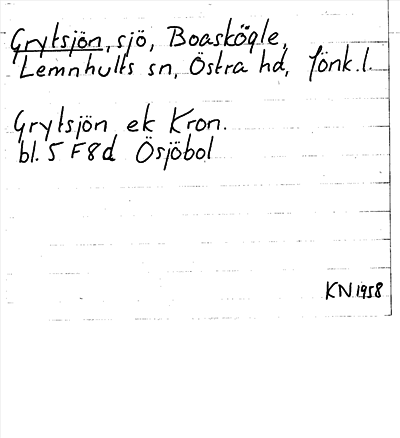 Grytsjön, sjö, Boaskögle,
Lemnhults sn, Östra hd, Jönk.l.
Grytsjön ek Kron.
bl. 5 F8d Ösjöbol
KN 1958